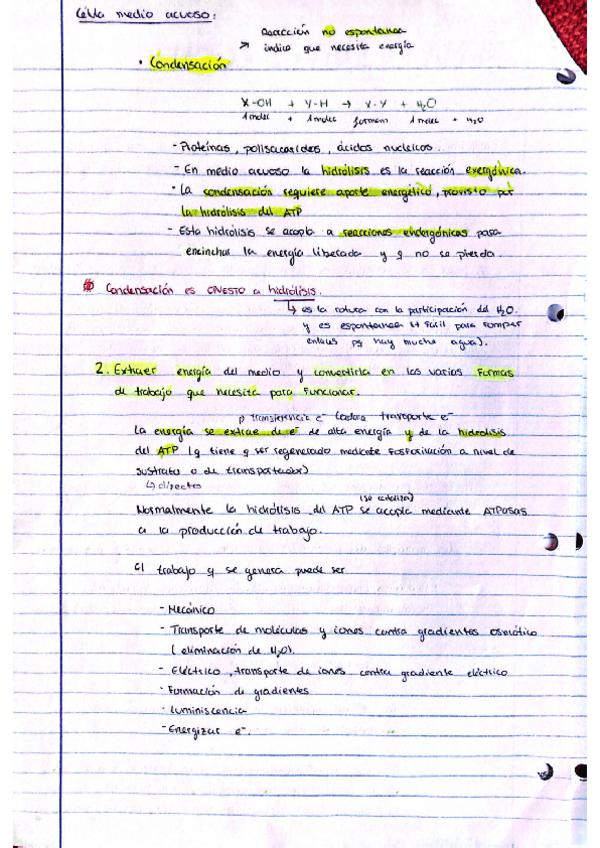 Célula medio acuoso:
Reacción no espontanea
↗ indica que necesita energía
• Condensación
X-OH + Y-H → X-Y + H₂O
1 molec + 1 molec forman 1 molec + H₂O
- Proteínas, polisacaridos, ácidos nucleicos.
- En medio acuoso la hidrólisis es la reacción exergónica.
• La condensación requiere aporte energético, provisto por
la hidrólisis del ATP
- Esta hidrólisis se acopla a reacciones endergónicas para
la energía liberada y q no se pierda.
Condensación es OPUESTO a hidrólisis.
↳ es la rotura con la participación del H₂O.
y es espontanea (+ facil para romper
enlaces pq hay mucha agua).
2. Extraer energía del medio y convertirla en las varias formas
de trabajo que necesita para funcionar.
transferencia e⁻ (cadena transporte e⁻
La energía se extrae de e⁻ de alta energía y de la hidrolisis
del ATP (q tiene q ser regenerado mediante fosforilación a nivel de
sustrato o de transportador)
↳ directos
(se cataliza)
Normalmente la hidrólisis del ATP se acopla mediante ATPasas
a la producción de trabajo.
El trabajo q se genera puede ser
- Mecánico
- Transporte de moléculas y iones contra gradientes osmótico
(eliminación de H₂O).
- Eléctrico, transporte de iones contra gradiente eléctrico
- Formación de gradientes
- Luminiscencia
- Energizar e⁻.